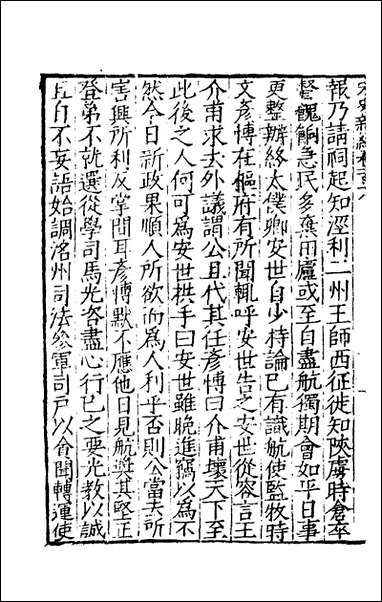 報乃請祠起知涇利二州王師西征徙知陝虜時倉卒
督餽餉急民多棄田廬或至自盡航獨期會如平日事
更整辦終太僕卿安世自少持論已有識航使監牧時
文彥博在樞府有所聞輒呼安世告之安世從容言王
介甫求去外議謂公且代其任彥博曰介甫壞天下至
此後之人何可為安世拱手曰安世雖晚進竊以為不
然今日新政果順人所欲而為人利乎否則公當去所
害興所利反掌間耳彥博默不應他日見航獎其堅正
登第不就選從學司馬光咨盡心行已之要光教以誠
且自不妄語始調洺州司法參軍司戶以貪聞轉運使